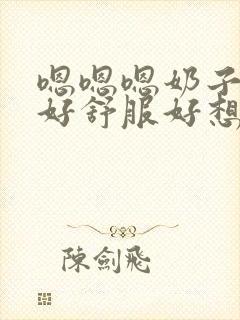 嗯嗯嗯奶子
好舒服好想
陳劍飛